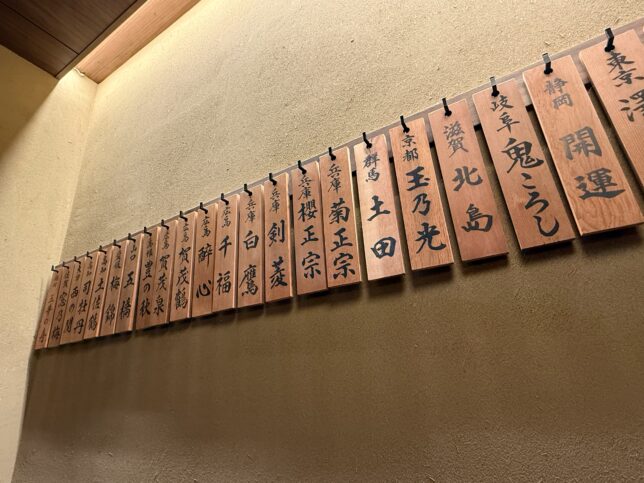 東京 澤
静岡 開運
岐阜 鬼ころし
滋賀 北島
京都 玉乃光
群馬 土田
兵庫 菊正宗
兵庫 櫻正宗
兵庫 剣菱
兵庫 白鷹
広島 千福
広島 醉心
広島 賀茂鶴
広島 賀茂泉
豊の秋
五橋
梅錦
土佐鶴
司牡丹
西の関
窓乃梅